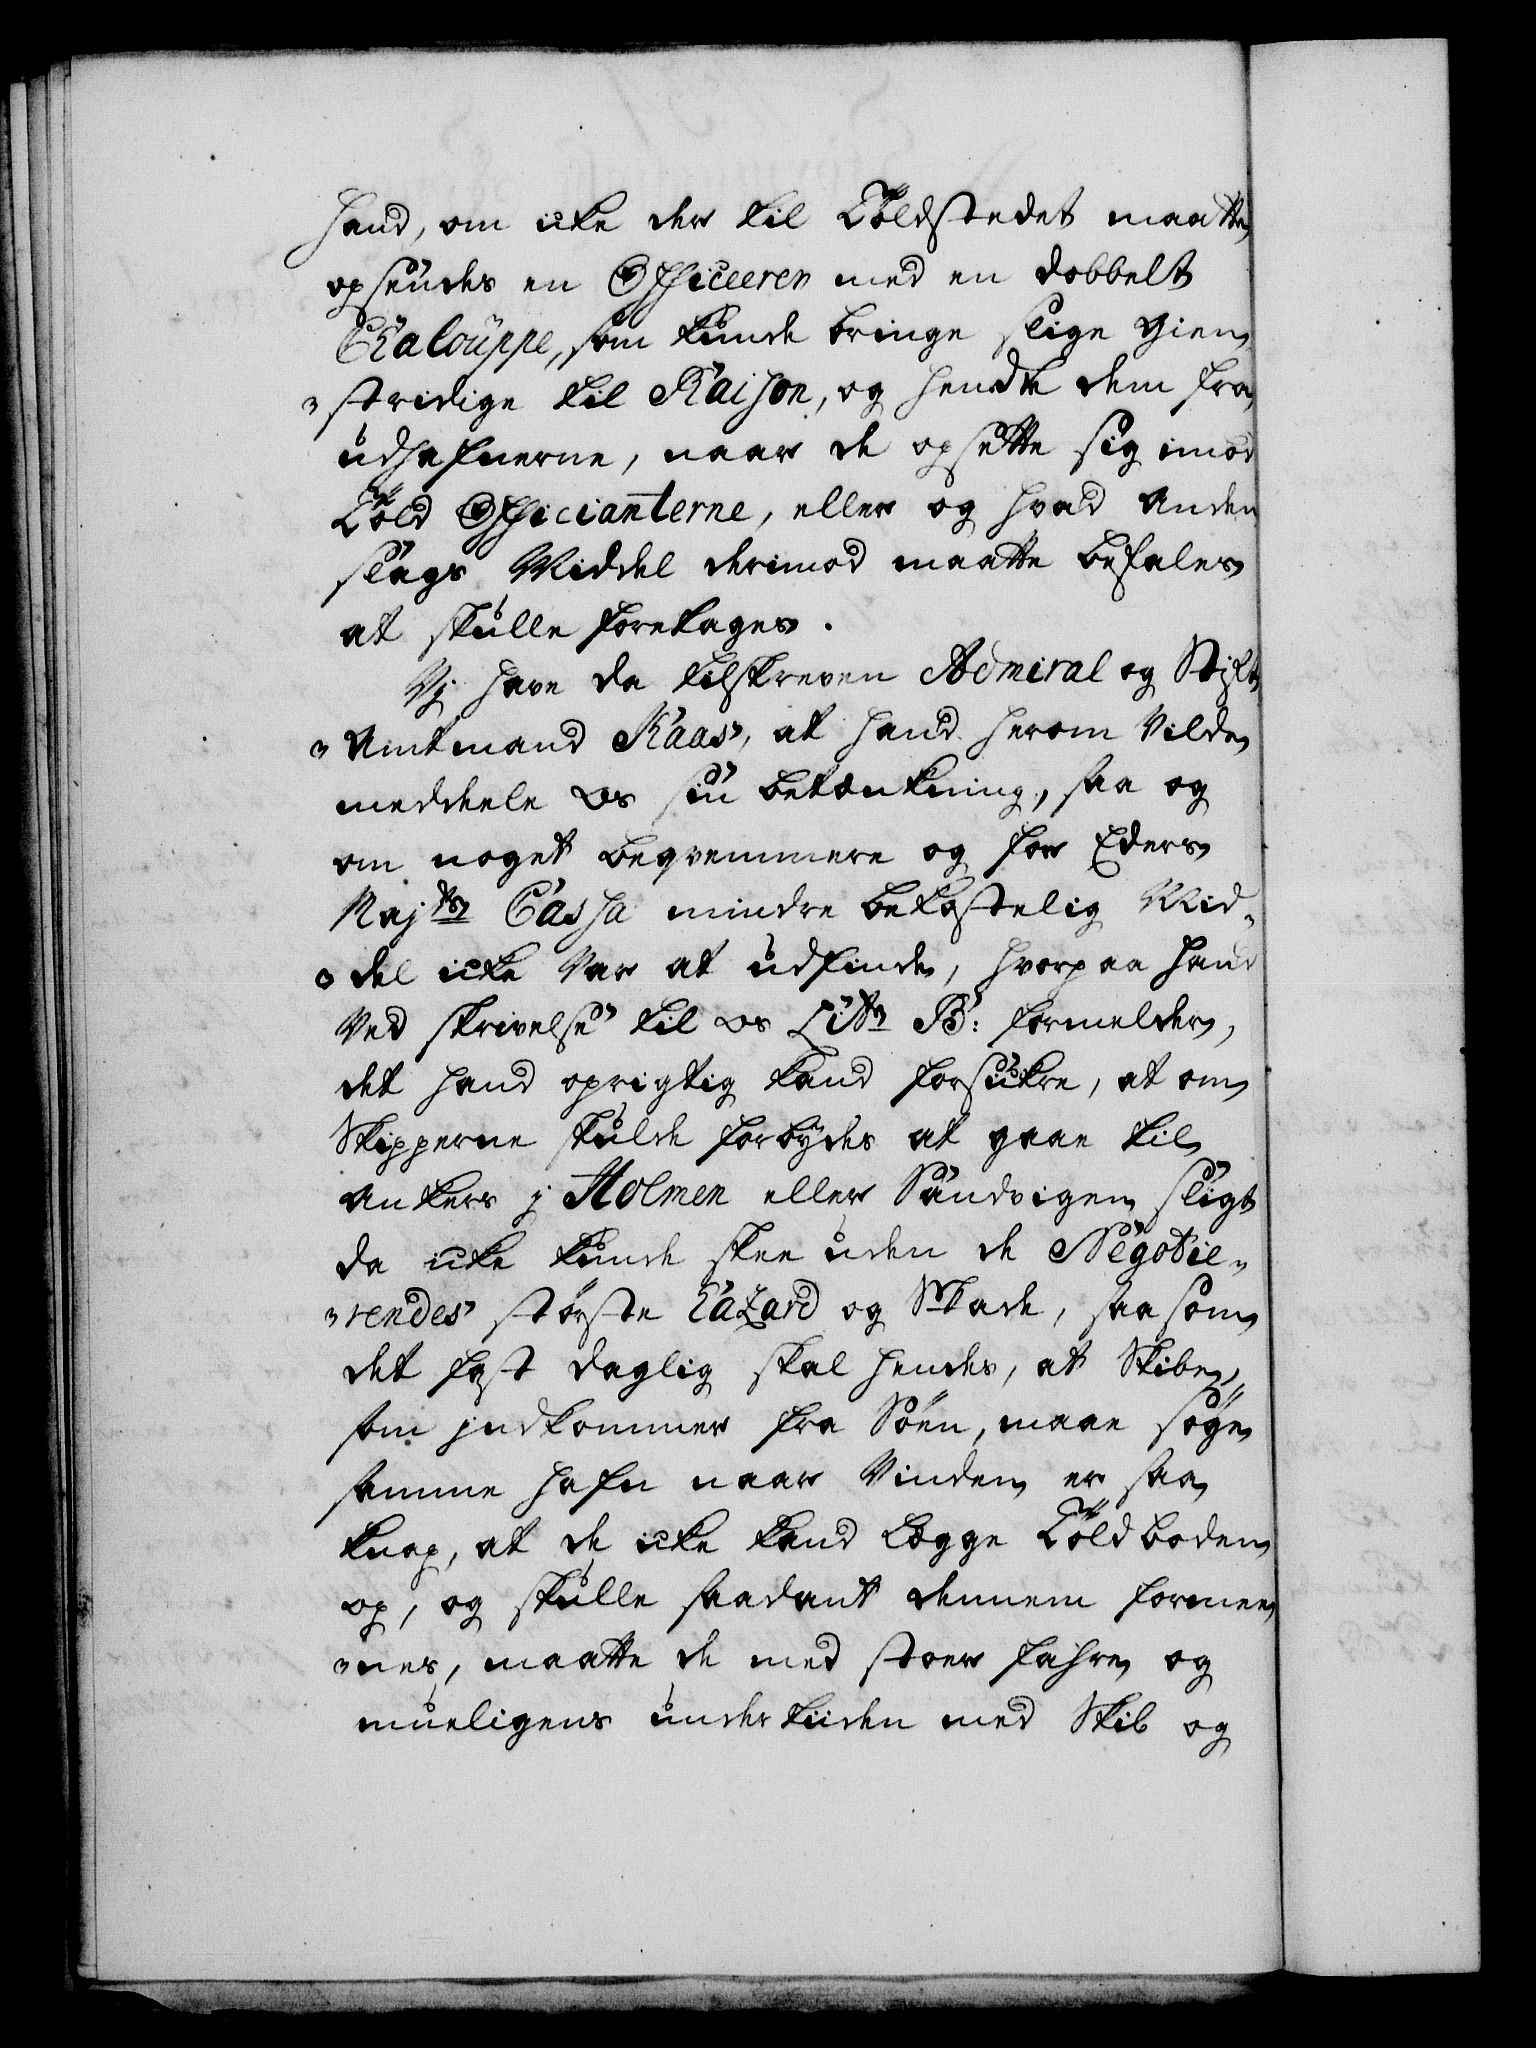 hand, om icke der til Toldstedet maatte
opsendes en Officeerer med en dobbelt
Chalouppe, som kunde bringe slige Gien
-stridige til Raison, og hendte dem fra
udhafnerne, naar de opsette sig imod
Told Officianterne, eller og hvad anden
slags Middel derimod maatte befales
at skulle foretages.
Vj have da tilskreven Admiral og Stift
-Amtmand Kaas, at hand herom vilde
meddeele os sin betænkning, saa og
om noget beqvemmere og for Eders
Majts Cassa mindre bekostelig Mid-
-del icke var at udfinde, hvorpaa hand
ved skrivelse til os Litr B: formelder,
det hand oprigtig kand forsickre, at om
Skipperne skulde forbydes at gaae til
Ankers j Holmen eller Sandvigen sligt
da icke kunde skee uden de Negotie-
-rendes största Hazard og Skade, saasom
det fast daglig skal hendes, at Skibe,
som jndkommer fra Söen, maae söge
samme hafn naar Vinden er saa
knap, at de icke kand lægge Toldboden
op, og skulle saadant dennem formee
-nes, maatte de med stoer fahre og
mueligens undertiiden med Skib og